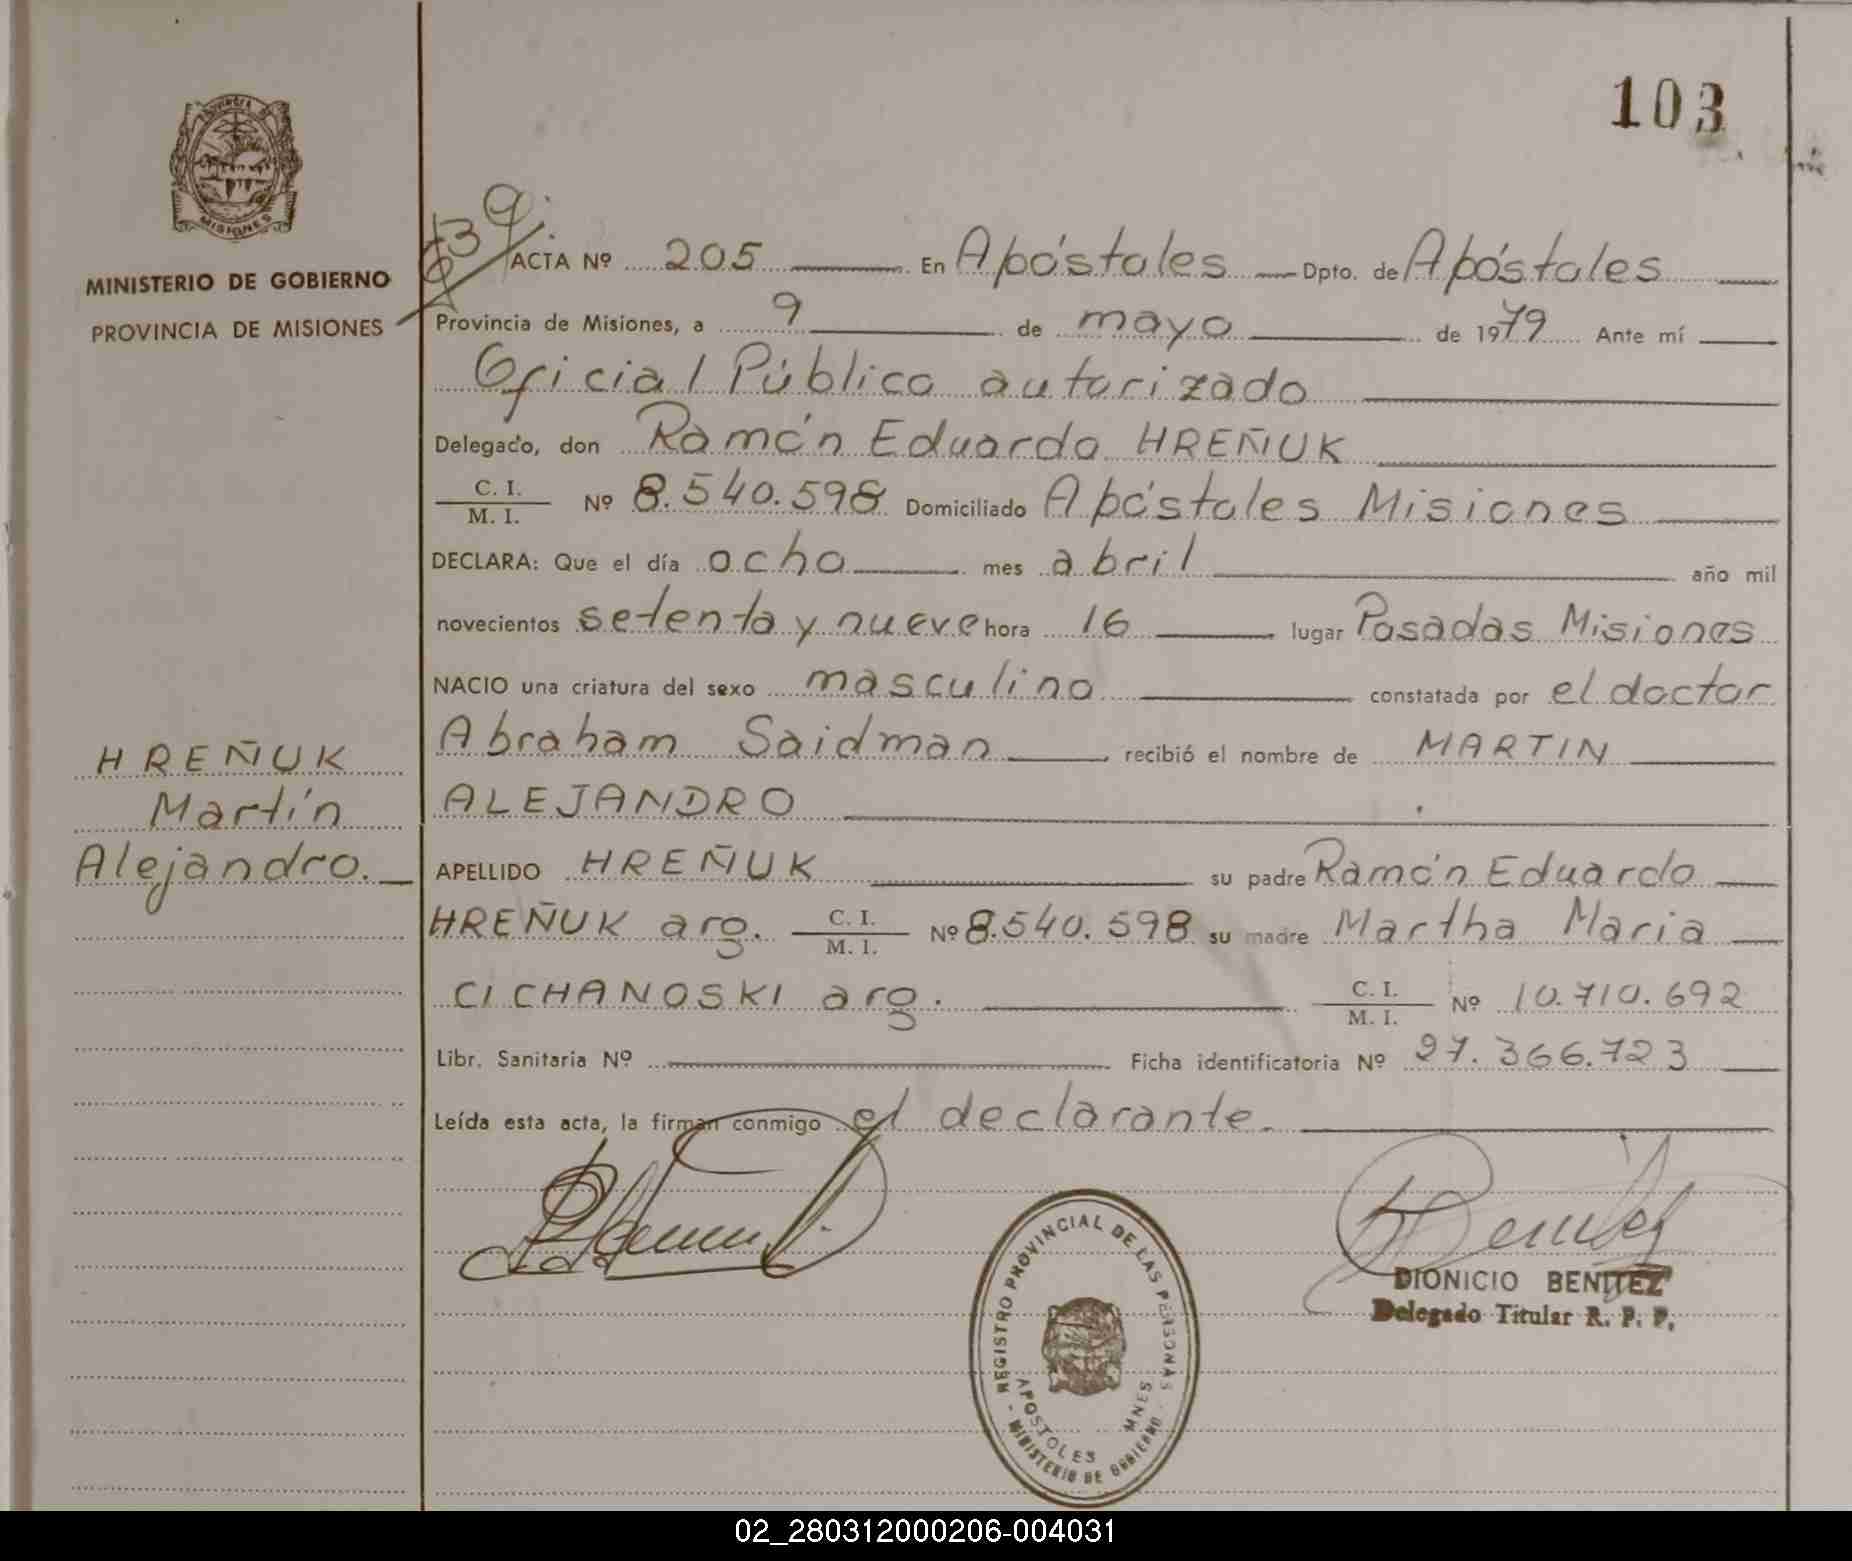 103
PROVINCIA DE
MISIONES
MINISTERIO DE GOBIERNO
PROVINCIA DE MISIONES
ACTA Nº 205 En Apóstoles Dpto. de Apóstoles
Provincia de Misiones, a 9 de mayo de 1979 Ante mí
Oficial Público autorizado
Delegado, don Ramón Eduardo HREÑUK
C. I.
M. I. Nº 8.540.598 Domiciliado Apóstoles Misiones
DECLARA: Que el día ocho mes abril año mil
novecientos setenta y nueve hora 16 lugar Posadas Misiones
NACIO una criatura del sexo masculino constatada por el doctor
Abraham Saidman recibió el nombre de MARTIN
ALEJANDRO
HREÑUK
Martín
Alejandro.
APELLIDO HREÑUK su padre Ramón Eduardo
HREÑUK arg. C. I.
M. I. Nº 8.540.598 su madre Martha Maria
CICHANOSKI arg. C. I.
M. I. Nº 10.710.692
Libr. Sanitaria Nº Ficha identificatoria Nº 27.366.723
Leída esta acta, la firman conmigo el declarante.
REGISTRO PROVINCIAL DE LAS PERSONAS
- MINISTERIO DE GOBIERNO -
APOSTOLES MNES
DIONICIO BENITEZ
Delegado Titular R. P. P.
02_280312000206-004031